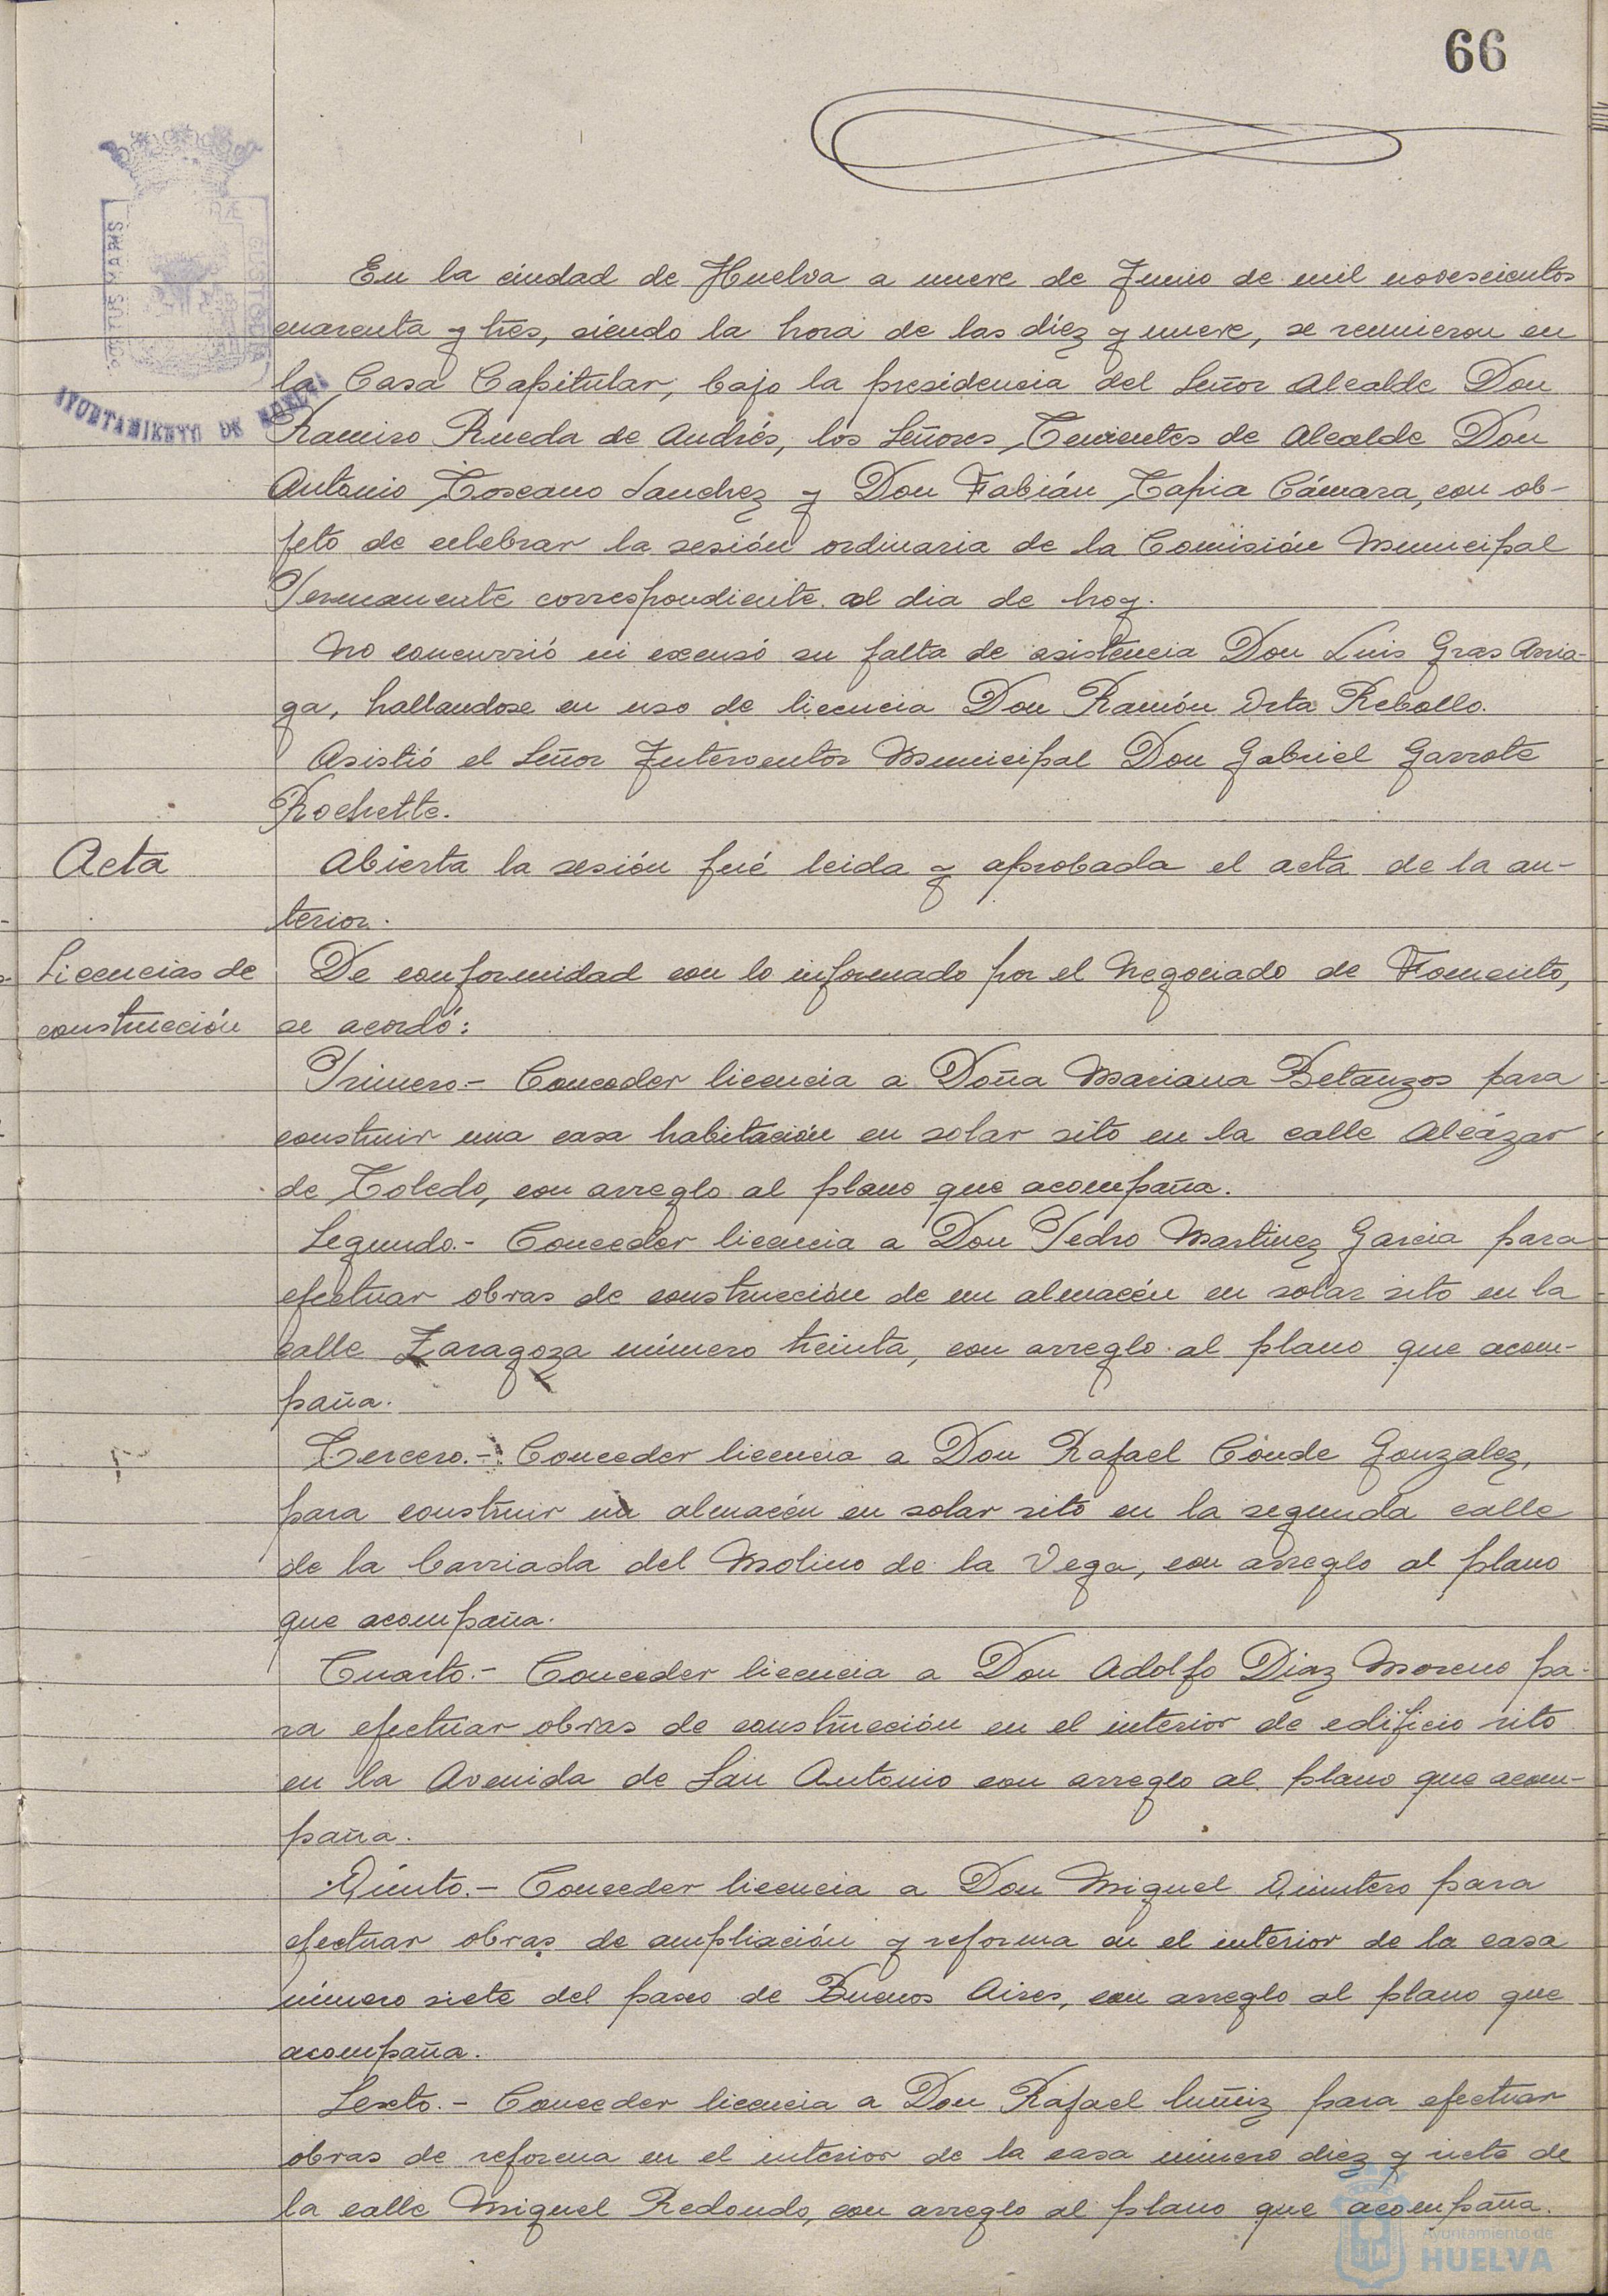 66
PORTUS MARIS
ET TERRÆ
CUSTODIA
AYUNTAMIENTO DE HUELVA
En la ciudad de Huelva a nueve de Junio de mil novescientos
cuarenta y tres, siendo la hora de las diez y nueve, se reunieron en
la Casa Capitular, bajo la presidencia del Señor Alcalde Don
Ramiro Rueda de Andrés, los Señores Tenientes de Alcalde Don
Antonio Toscano Sanchez y Don Fabián Tapia Cámara, con ob-
jeto de celebrar la sesión ordinaria de la Comisión Municipal
Permanente correspondiente al dia de hoy.
No concurrió ni excusó su falta de asistencia Don Luis Gras Arria-
ga, hallandose en uso de licencia Don Ramón Orta Rebollo.
Asistió el Señor Interventor Municipal Don Gabriel Garrote
Rochette.
Acta
Abierta la sesión fué leida y aprobada el acta de la an-
terior.
Licencias de
construcción
De conformidad con lo informado por el Negociado de Fomento,
se acordó:
Primero.- Conceder licencia a Doña Mariana Betanzos para
construir una casa habitación en solar sito en la calle Alcázar
de Toledo, con arreglo al plano que acompaña.
Segundo.- Conceder licencia a Don Pedro Martinez Garcia para
efectuar obras de construcción de un almacén en solar sito en la
calle Zaragoza número treinta, con arreglo al plano que acom-
paña.
Tercero.- Conceder licencia a Don Rafael Conde Gonzalez,
para construir un almacén en solar sito en la segunda calle
de la barriada del Molino de la Vega, con arreglo al plano
que acompaña.
Cuarto.- Conceder licencia a Don Adolfo Diaz Moreno pa-
ra efectuar obras de construcción en el interior de edificio sito
en la Avenida de San Antonio con arreglo al plano que acom-
paña.
Quinto.- Conceder licencia a Don Miguel Quintero para
efectuar obras de ampliación y reforma en el interior de la casa
número siete del paseo de Buenos Aires, con arreglo al plano que
acompaña.
Sexto.- Conceder licencia a Don Rafael Muñiz para efectuar
obras de reforma en el interior de la casa número diez y siete de
la calle Miguel Redondo, con arreglo al plano que acompaña.
Ayuntamiento de
HUELVA